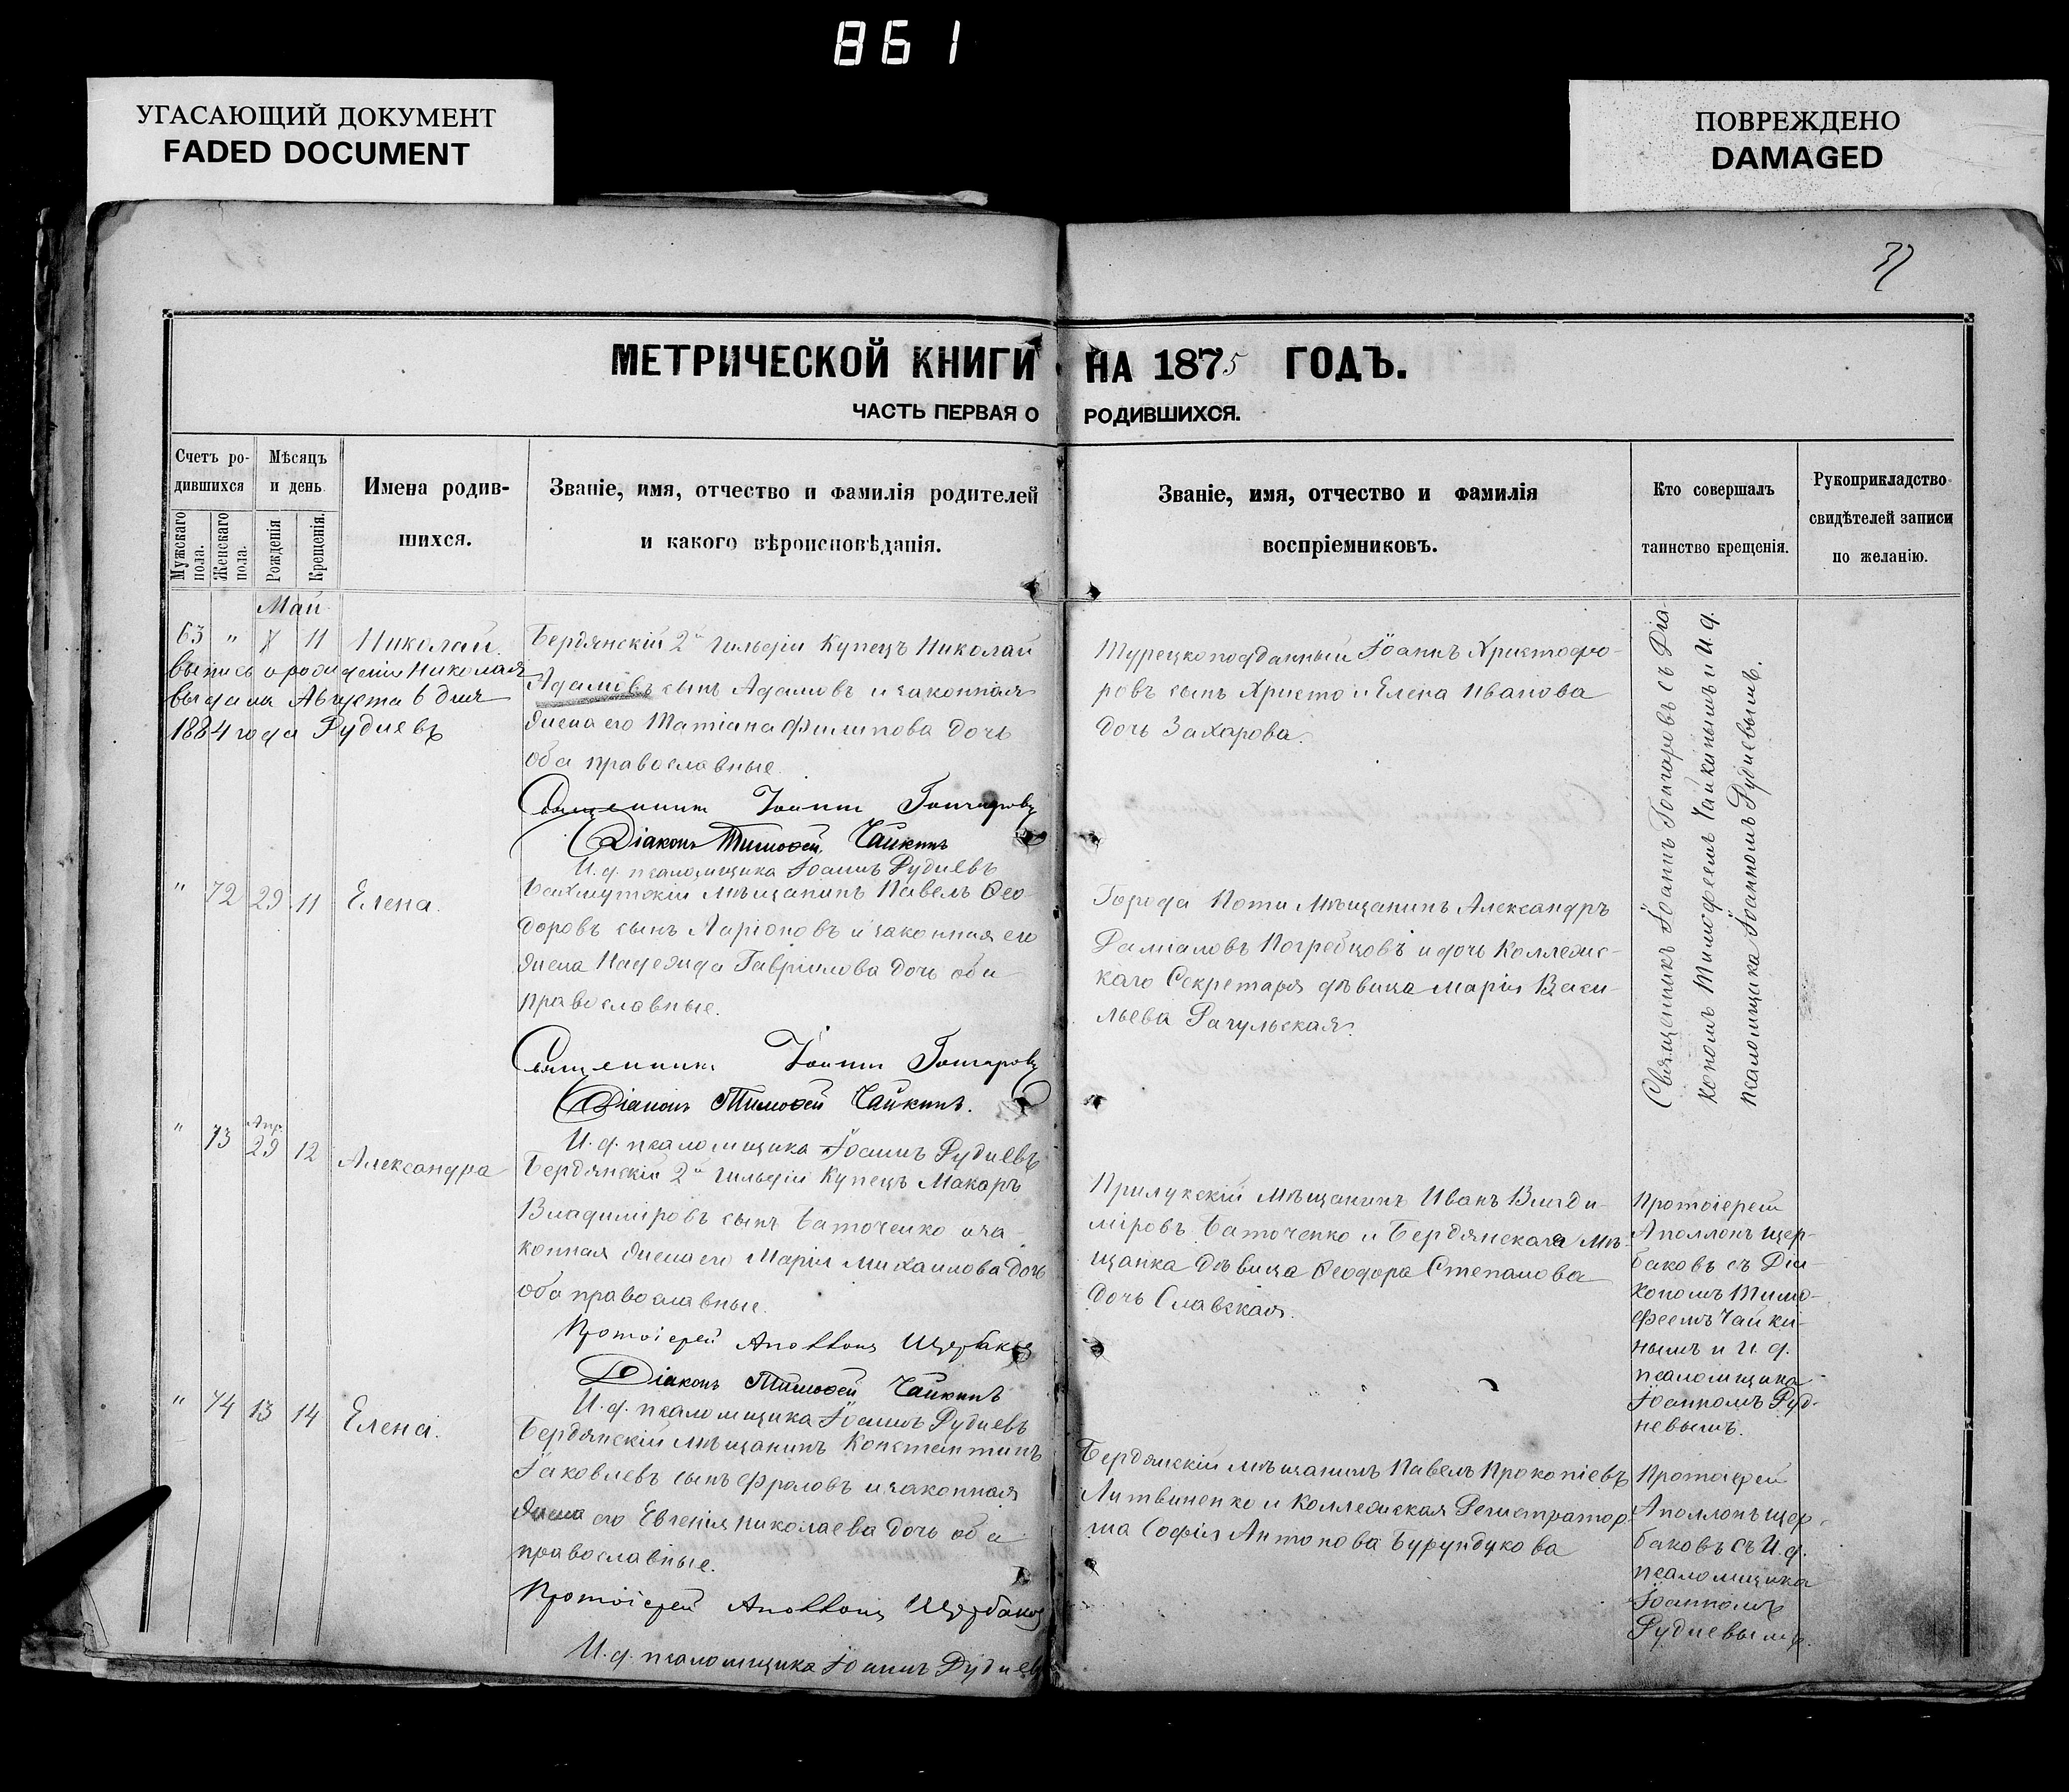 861
УГАСАЮЩИЙ ДОКУМЕНТ
FADED DOCUMENT
ПОВРЕЖДЕНО
DAMAGED
МЕТРИЧЕСКОЙ КНИГИ НА 1875 ГОДЪ.
ЧАСТЬ ПЕРВАЯ О РОДИВШИХСЯ.
Счетъ ро-
дившихся
Мужскаго пола.
Женскаго пола.
Мѣсяцъ
и день
Рожденія
Крещенія.
Имена родив-
шихся.
Званіе, имя, отчество и фамилія родителей
и какого вѣроисповѣданія.
Званіе, имя, отчество и фамилія
воспріемниковъ.
Кто совершалъ
таинство крещенія.
Рукоприкладство
свидѣтелей записи
по желанію.
Май
63 " 11 Николай.
выпись о рожденіи Николая
выдана Августа 6 дня
1884 года Рудневъ
Бердянскій 2й Гильдіи Купецъ Николай
Адамовъ сынъ Адамовъ и законная
жена его Татіана Филипова дочь
оба православные.
Священникъ Іоаннъ Гончаровъ
Діаконъ Тимоѳей Чайкинъ
И. д. псаломщика Іоаннъ Рудневъ
Турецкоподданный Іоаннъ Христофо-
ровъ сынъ Христо и Елена Иванова
дочь Захарова.
Священникъ Іоаннъ Гончаровъ съ Діа-
кономъ Тимофеемъ Чайкинымъ и И. д.
псаломщика Іоанномъ Рудневымъ.
" 72 29 11 Елена.
Бахмутскій мѣщанинъ Павелъ Ѳео-
доровъ сынъ Ларіоновъ и законная его
жена Надежда Гаврилова дочь оба
православные.
Священникъ Іоаннъ Гончаровъ
Діаконъ Тимоѳей Чайкинъ.
И. д. псаломщика Іоаннъ Рудневъ
Города Поти Мѣщанинъ Александръ
Погребцовъ и дочь Коллежс-
каго Секретаря дѣвица Марія Васи-
льева Рагульская.
" 73 Апр. 29 12 Александра
Бердянскій 2й Гильдіи Купецъ Макаръ
Владиміровъ сынъ Баточенко и за-
конная жена его Марія Михаилова дочь
оба православные.
Протоіерей Аполлонъ Щербаковъ
Діаконъ Тимоѳей Чайкинъ
И. д. псаломщика Іоаннъ Рудневъ
Прилукскій Мѣщанинъ Иванъ Влади-
міровъ Баточенко и Бердянская Мѣ-
щанка дѣвица Ѳеодора Степанова
дочь Славская.
Протоіерей
Аполлонъ Щер-
баковъ съ Діа-
кономъ Тимо-
феемъ Чайки-
нымъ и И. д.
псаломщика
Іоанномъ Руд-
невымъ.
" 74 13 14 Елена.
Бердянскій мѣщанинъ Константинъ
Іаковлевъ сынъ Фроловъ и законная
жена его Евгенія Николаева дочь оба
православные.
Протоіерей Аполлонъ Щербаковъ
И. д. псаломщика Іоаннъ Рудневъ
Бердянскій мѣщанинъ Павелъ Прокопіевъ
Литвиненко и Коллежская Регистратор-
ша Софія Антонова Бурундукова
Протоіерей
Аполлонъ Щер-
баковъ съ И. д.
псаломщика
Іоанномъ
Рудневымъ.